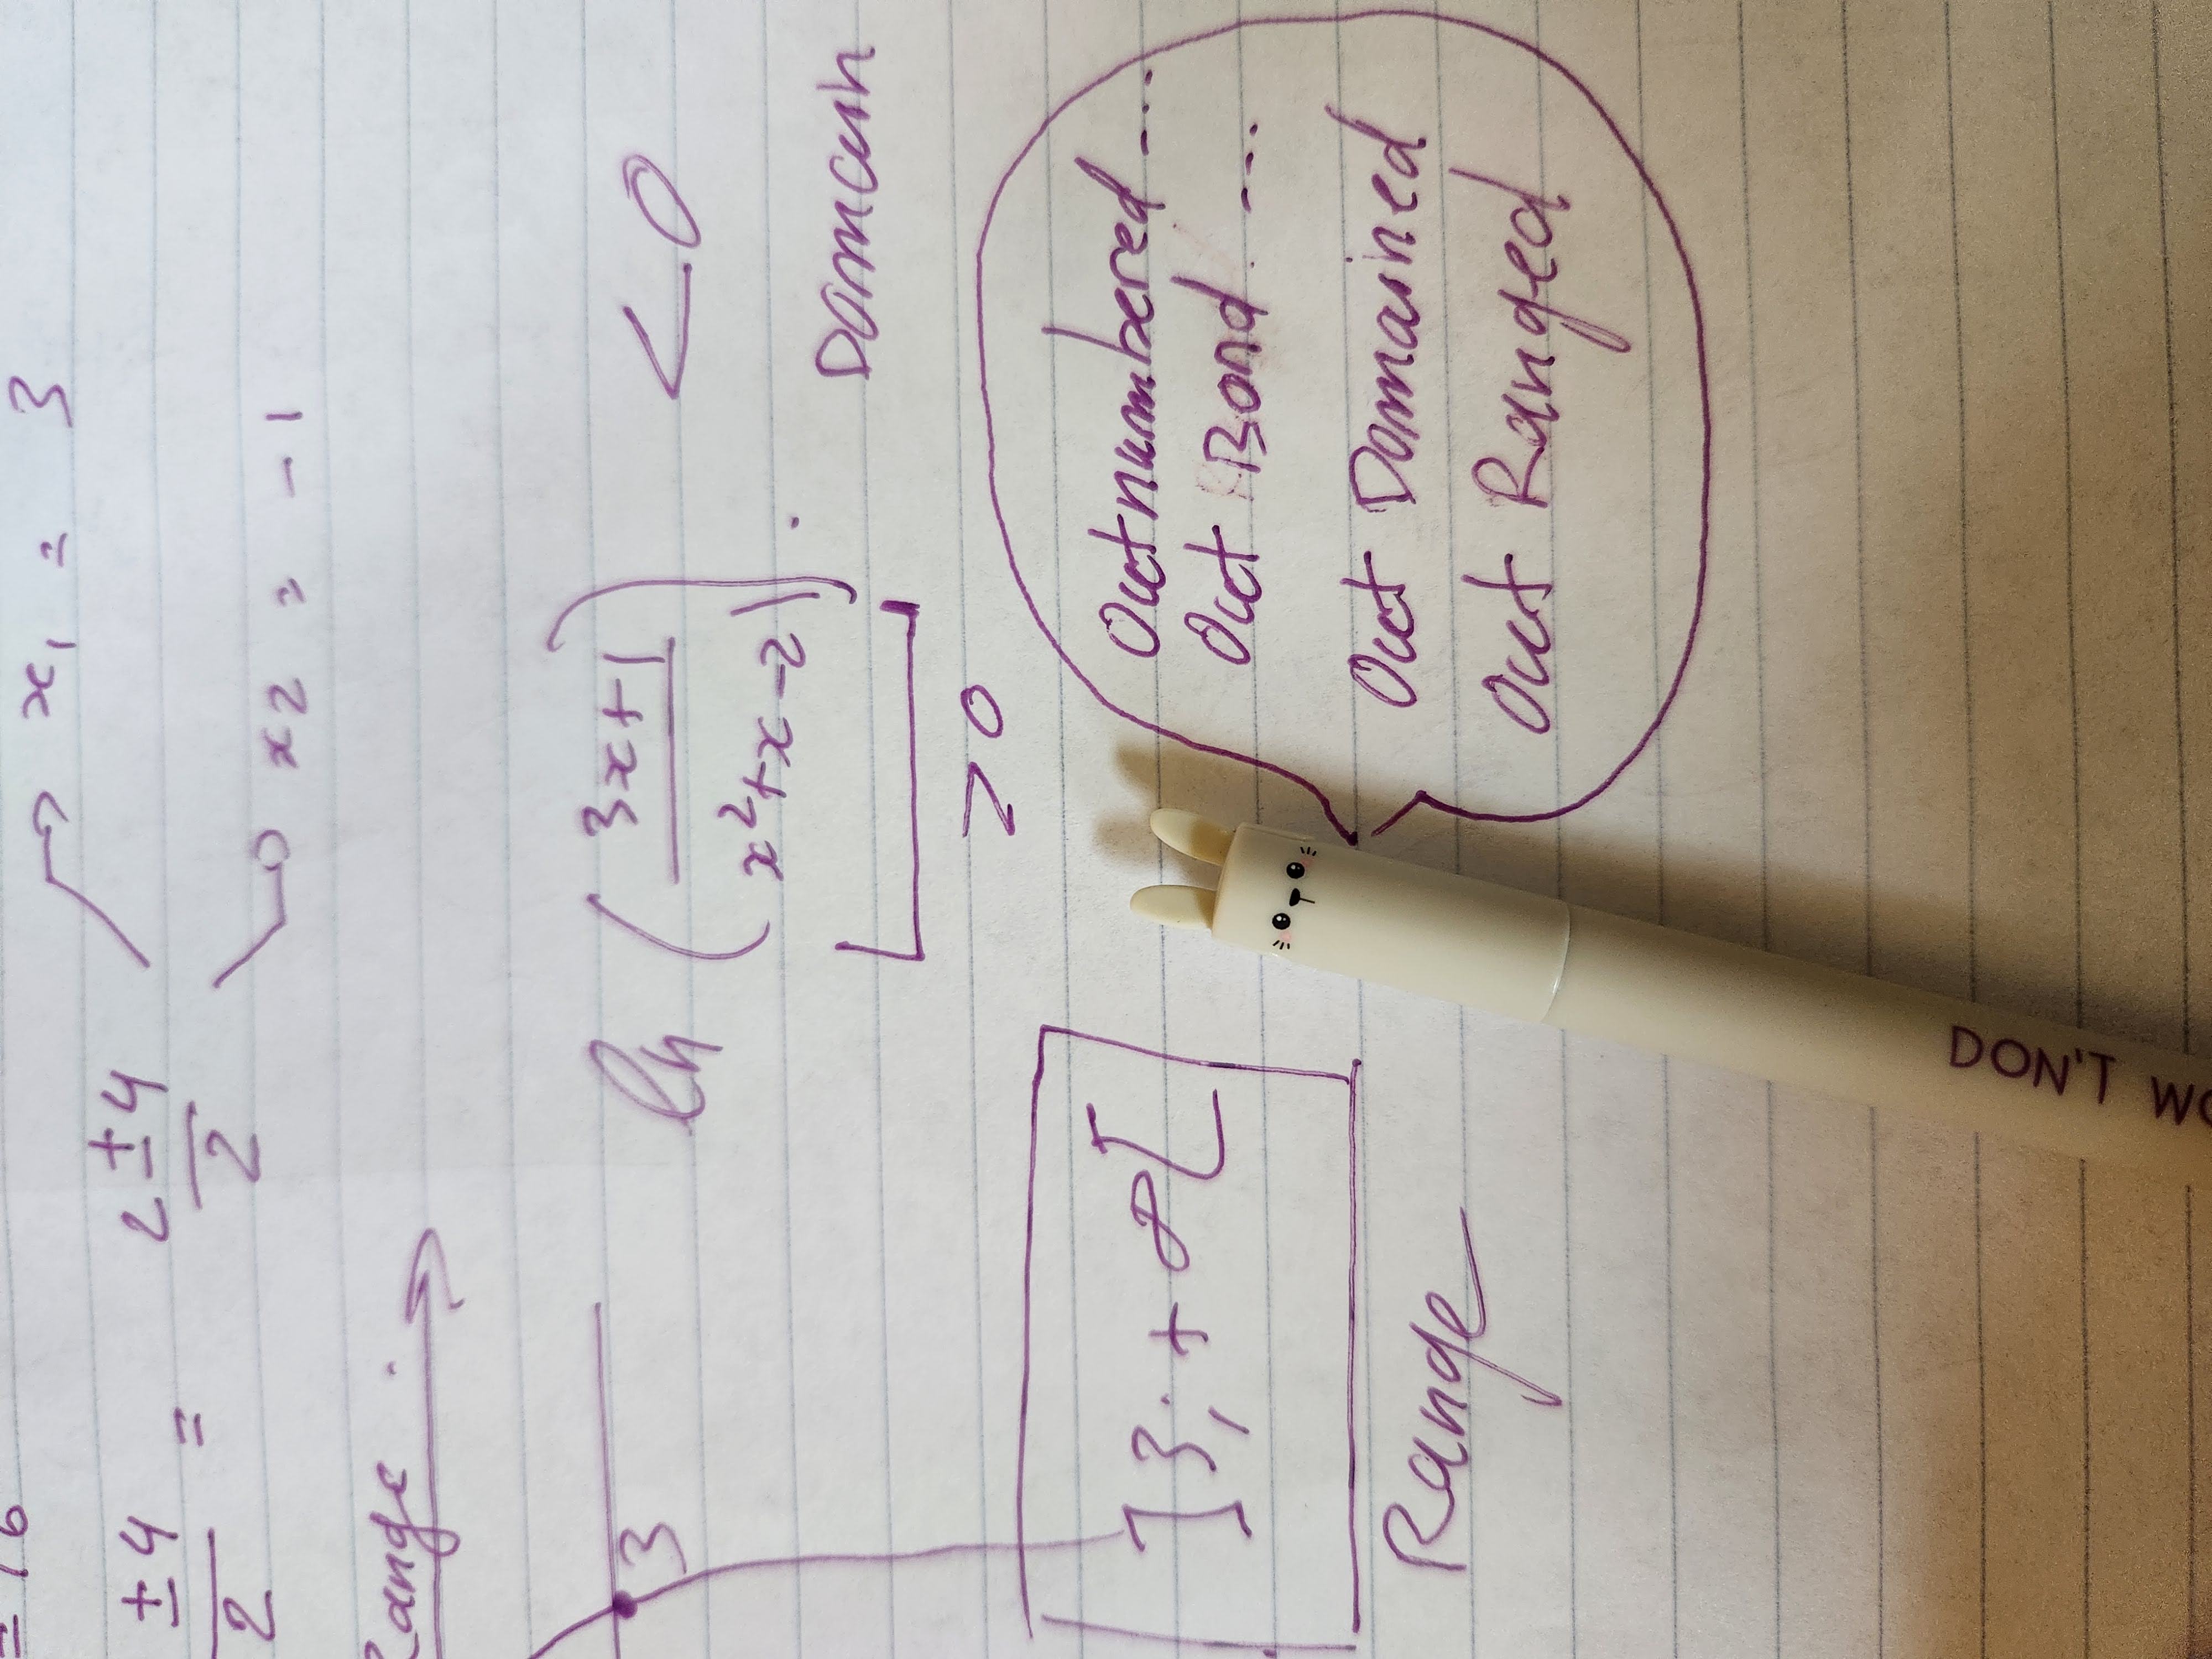 = 16
x₁ = 3
± 4 / 2 = 2 ± 4 / 2
x2 = -1
Range
3
ln ( 3x+1 / x²+x-2 ) . < 0
Domain
> 0
] 3; + ∞ [
Range
Outnumbered ...
Out Bond. ...
Out Domained
Out Ranged
DON'T WO